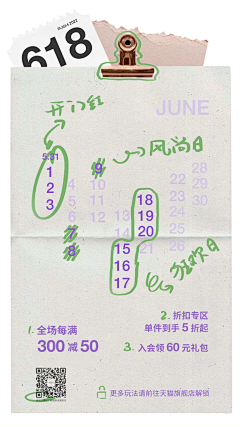 618
开门红
JUNE
风尚日
5/31
1
2
3
4
5
6
7
8
9
10
11
12
13
14
15
16
17
18
19
20
21
22
23
24
25
26
27
28
29
30
狂欢日
1. 全场每满
300 减 50
2. 折扣专区
单件到手 5 折起
3. 入会领 60 元礼包
更多玩法请前往天猫旗舰店解锁